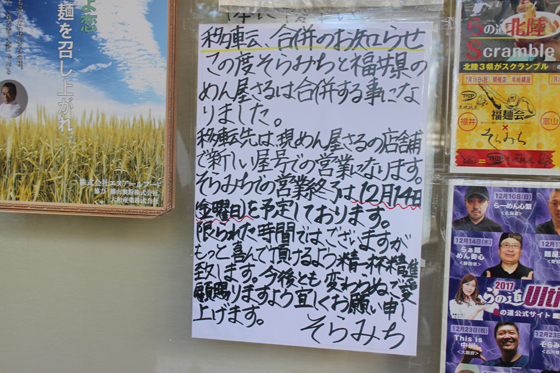 移転、合併のお知らせ
この度そらみちと福井県の
めん屋さるは合併する事にな
りました。
移転先は現めん屋さるの店舗
で新しい屋号での営業になります。
そらみちでの営業終了は12月14日
金曜日を予定しております。
限られた時間ではございますが
もっと喜んで頂けるよう精一杯精進
致します。今後とも変わらぬご愛
顧賜りますよう宜しくお願い申し
上げます。
そらみち
麺を召し上がれ
株式会社エヌアールフード
らの道 北陸
Scramble
北陸3県がスクランブル
福麺会
福井
×
富山
そらみち
12月10日(日)
らーめん心繋
12月14日(木)
らぁ麺
めん奏心
2017
らの道
Ulti
らの道公式サイト
12月23日(祝)
This is
中川